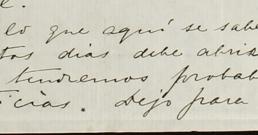 lo que aquí se sabe
tos dias debe abrir
tendremos probab
icias. Dejo para